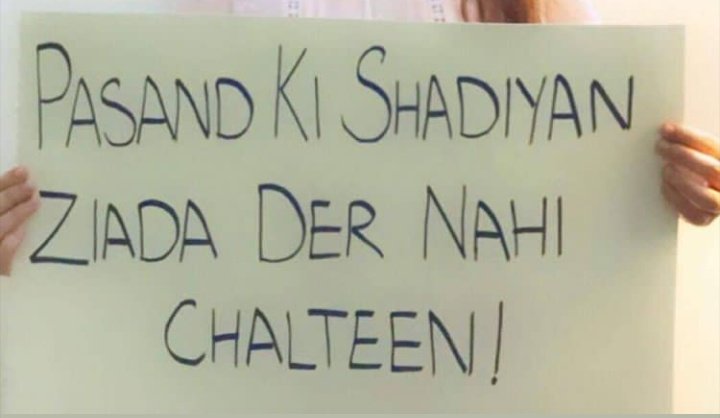 PASAND KI SHADIYAN
ZIADA DER NAHI
CHALTEEN!